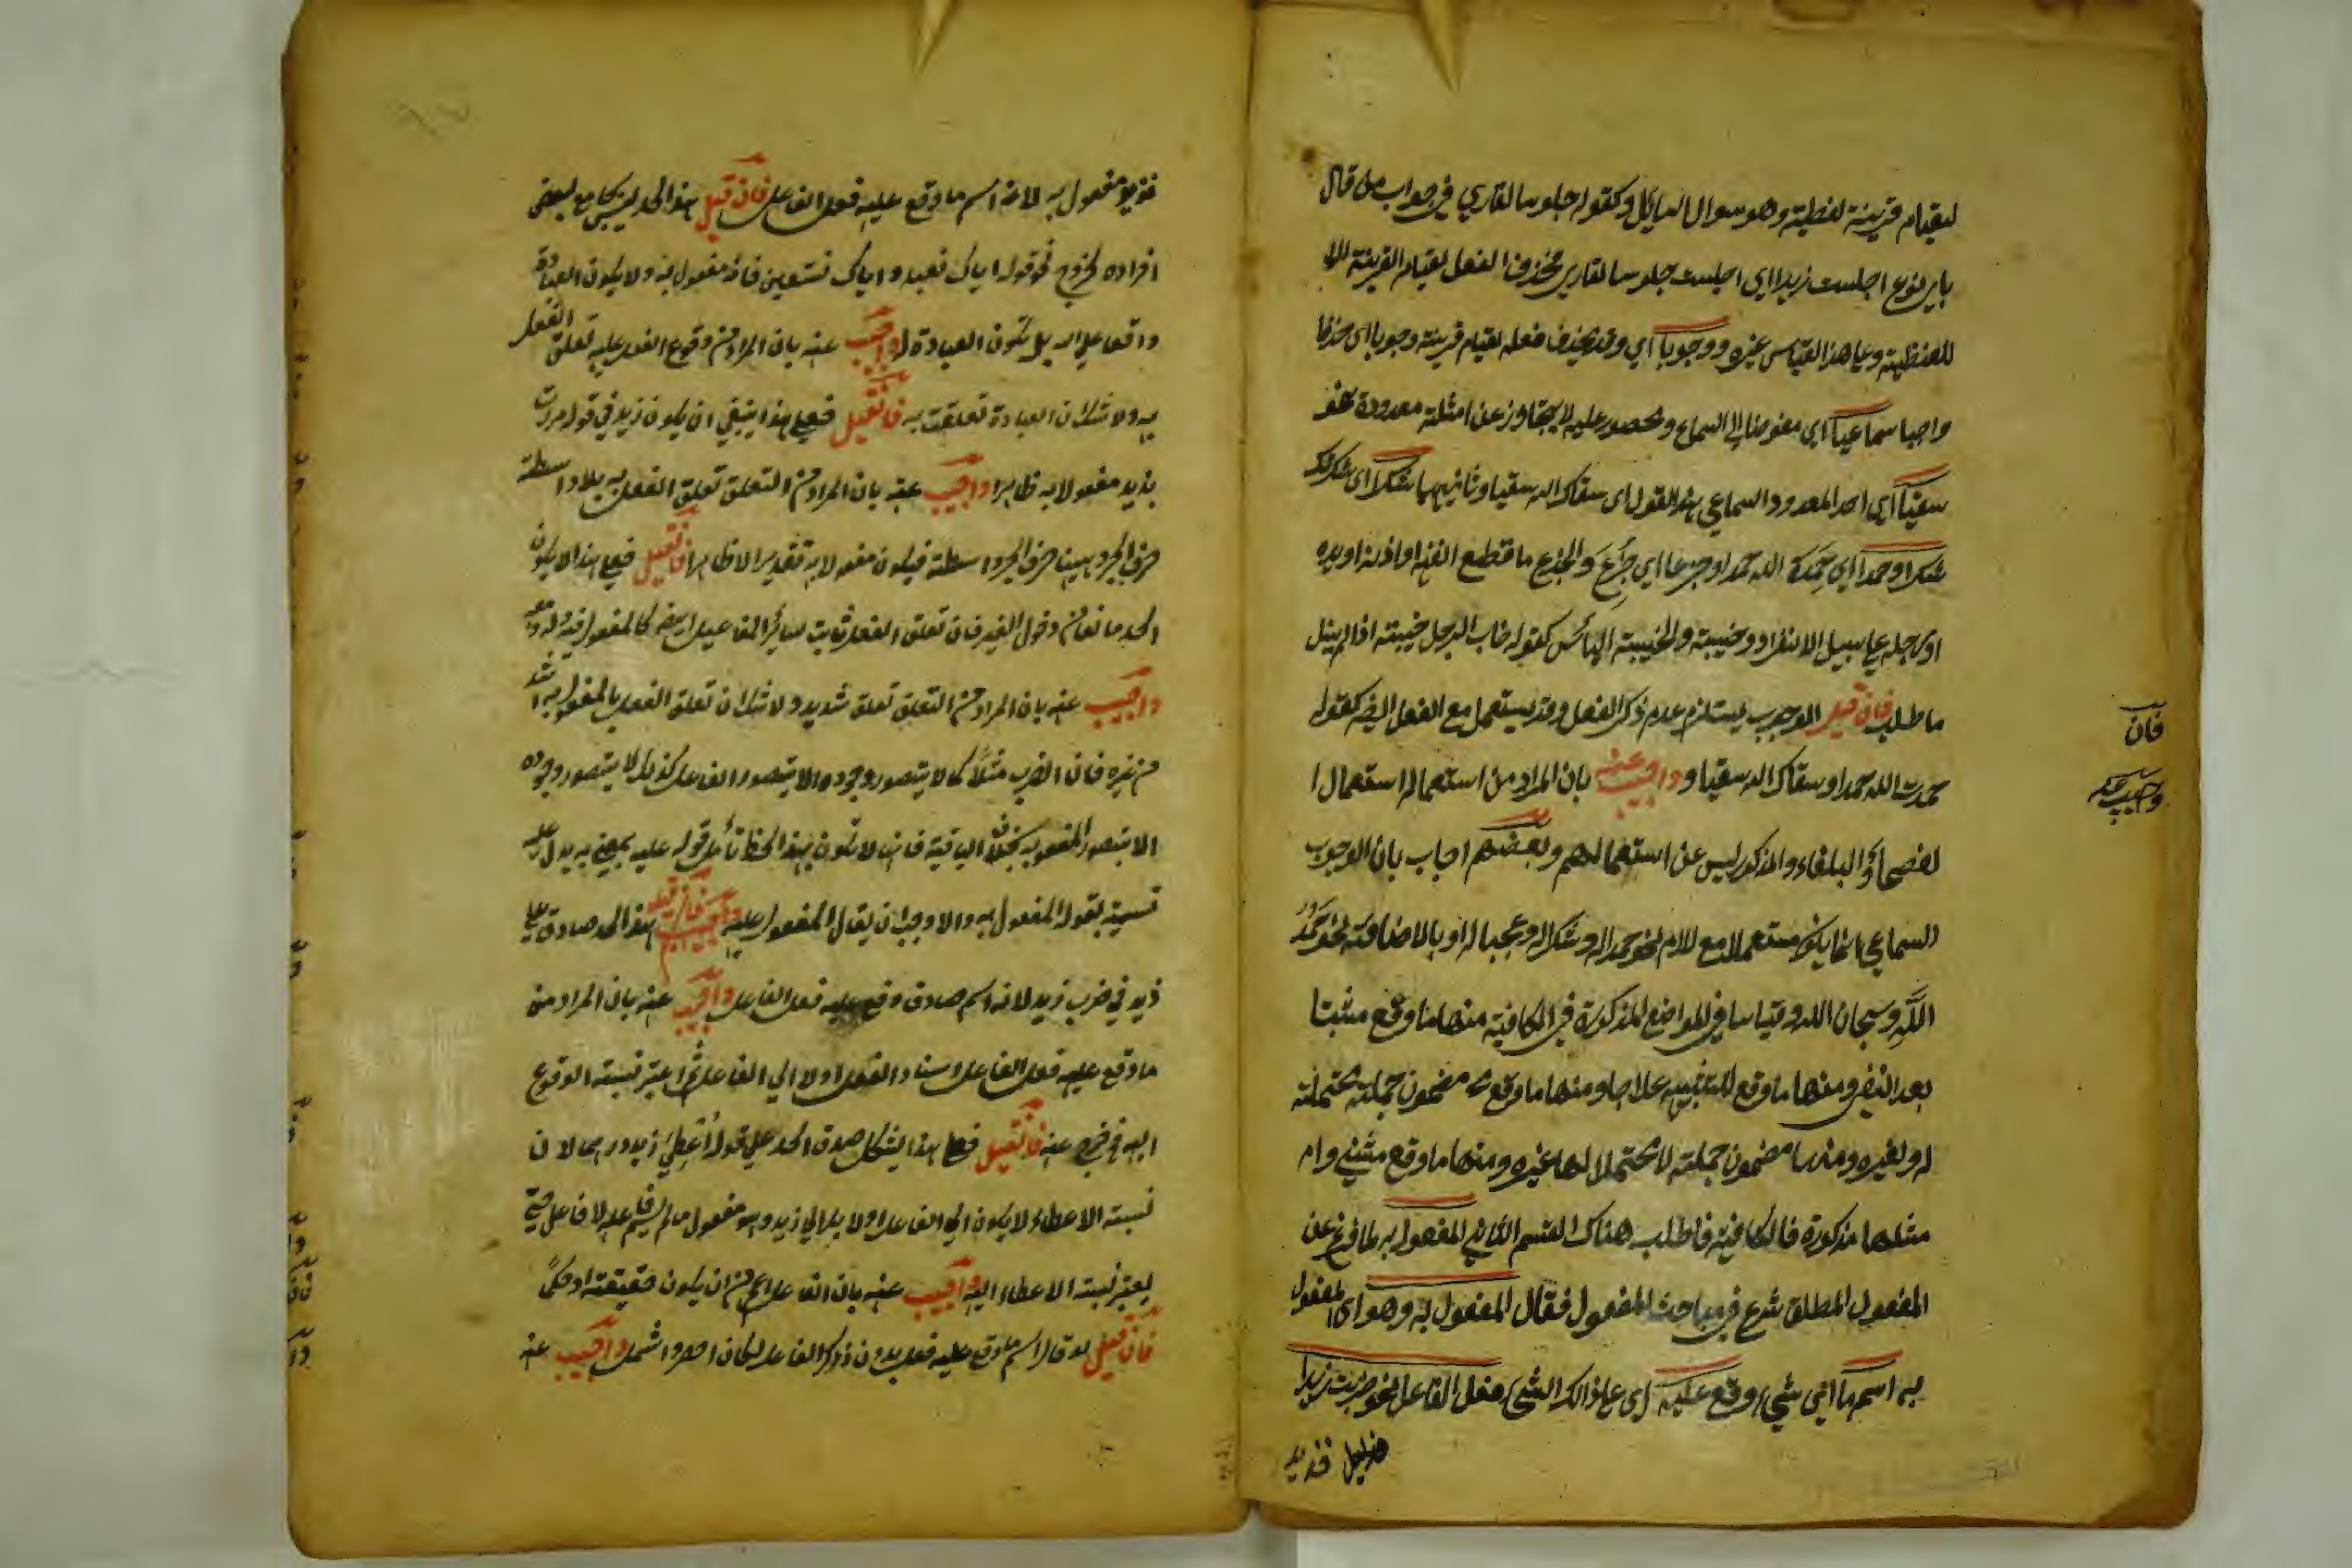 لقيام قرينة لفظية وهو سوال السائل وكقوله جلوسا لقاري في جواب من قال
باي نوع اجلست زيدا اي اجلست جلوسا لقاري فحذف الفعل لقيام القرينة
اللفظية وعلى هذا القياس غيره ووجوبا اي وقد يحذف فعله لقيام قرينة وجوبا اى حذفا
واجبا سماعيا اى مفوضا الى السماع ومحصور عليه لا يتجاوز عن امثلة معدودة نحو
سقيا اى احد المعدود السماعي هذا القول اى سقاك الله سقيا وثانيها شكرا اى شكرتك
شكرا وحمدا اي حَمِدَ الله حمدا وجزعا اي جَزِعَ والجزع ما قطع الانف او اذن او يده
او رجله على سبيل الانفراد وخيبة والخيبة اليائس كقوله خاب الرجل خيبة اذا لم ينل
ما طلب فان قيل الوجوب يستلزم عدم ذكر الفعل وقد يستعمل مع الفعل ايضه كقوله
حمدت الله حمدا وسقاك الله سقيا واجيب عنه بان المراد من استعماله استعمال
الفصحاء والبلغاء والمذكور ليس عن استعمالهم وبعضهم اجاب بان الوجوب
السماعي انما يكون مستعملا مع للام نحو حمدا له وشكرا له وعجبا له او بالاضافة نحو حَمْدَ
اللَّهِ وسبحان الله وقياسا في المواضع المذكورة في الكافية منها ما وقع مثبتا
بعد النفي ومنها ما وقع للتشبيه علاجا ومنها ما وقع مضمون جملة محتملة
له ولغيره ومنها مضمون جملة لا محتمل لها غيره ومنها ما وقع مثنى وام
مثلها مذكورة فالكافية فاطلب هناك القسم الثاني المفعول به لما فرغ عن
المفعول المطلق شرع في مباحث المفعول فقال المفعول به وهو اى المفعول
به اسم ما اى شيء وقع عليه اى على ذالك الشيء فعل الفاعل نحو ضربت زيدا
فزيد
فان
واجيب عنه
فزيد مفعول به لانه اسم ما وقع عليه فعل الفاعل فان قيل هذا الحد ليس بجامع لبعض
افراده لخروج نحو قوله اياك نعبد واياك نستعين فانه مفعول به ولا يكون العبادة
واقعا على الله بل تكون العبادة له واجيب عنه بان المراد من وقوع الفعل عليه تعلق الفعل
به ولا شك ان العبادة تعلقت به فان قيل فعلى هذا ينبغي ان يكون زيد في قوله مررت
بزيد مفعولا به ظاهرا واجيب عنه بان المراد من التعلق تعلق الفعل به بلا واسطة
حرف الجر وههنا حرف الجر واسطة فيكون مفعولا به تقديرا لا ظاهرا فان قيل فعلى هذا لا يكون
الحد مانعا من دخول الغير فان تعلق الفعل ثابت سائر المفاعيل ايضه كالمفعول فيه وله ومعه
واجيب عنه بان المراد من التعلق تعلق شديد ولا شك ان تعلق الفعل بالمفعول به اشد
من غيره فان الضرب مثلًا كما لا يتصور وجوده الا بتصور الفاعل كذلك لا يتصور وجوده
الا بتصور المفعول به بخلاف الباقية فانها لا تكون بهذا الحظ تأمل قوله عليه بمعنى به يدل عليه
تسميته بقوله المفعول به والا وجب ان يقال المفعول عليه فان قيل هذا الحد صادق على
زيد في ضرب زيد لانه اسم صادق وقع عليه فعل الفاعل واجيب عنه بان المراد من
ما وقع عليه فعل الفاعل اسناد الفعل اولا الى الفاعل ثم اعتبر نسبة الوقوع
اليه فيخرج عنه فان قيل فعلى هذا يشكل صدق الحد على قوله أُعْطِيَ زيد درهما لان
نسبة الاعطاء لا يكون الى الفاعل اولا بل الى زيد وهو مفعول ما لم يسم فاعله لا فاعل حتى
يعتبر نسبة الاعطاء اليه واجيب عنه بان الفاعل اعم من ان يكون حقيقة او حكمًا
فان قيل لو قال اسم ما وقع عليه فعل بدون ذكر الفاعل لكان اخصر واشمل واجيب عنه